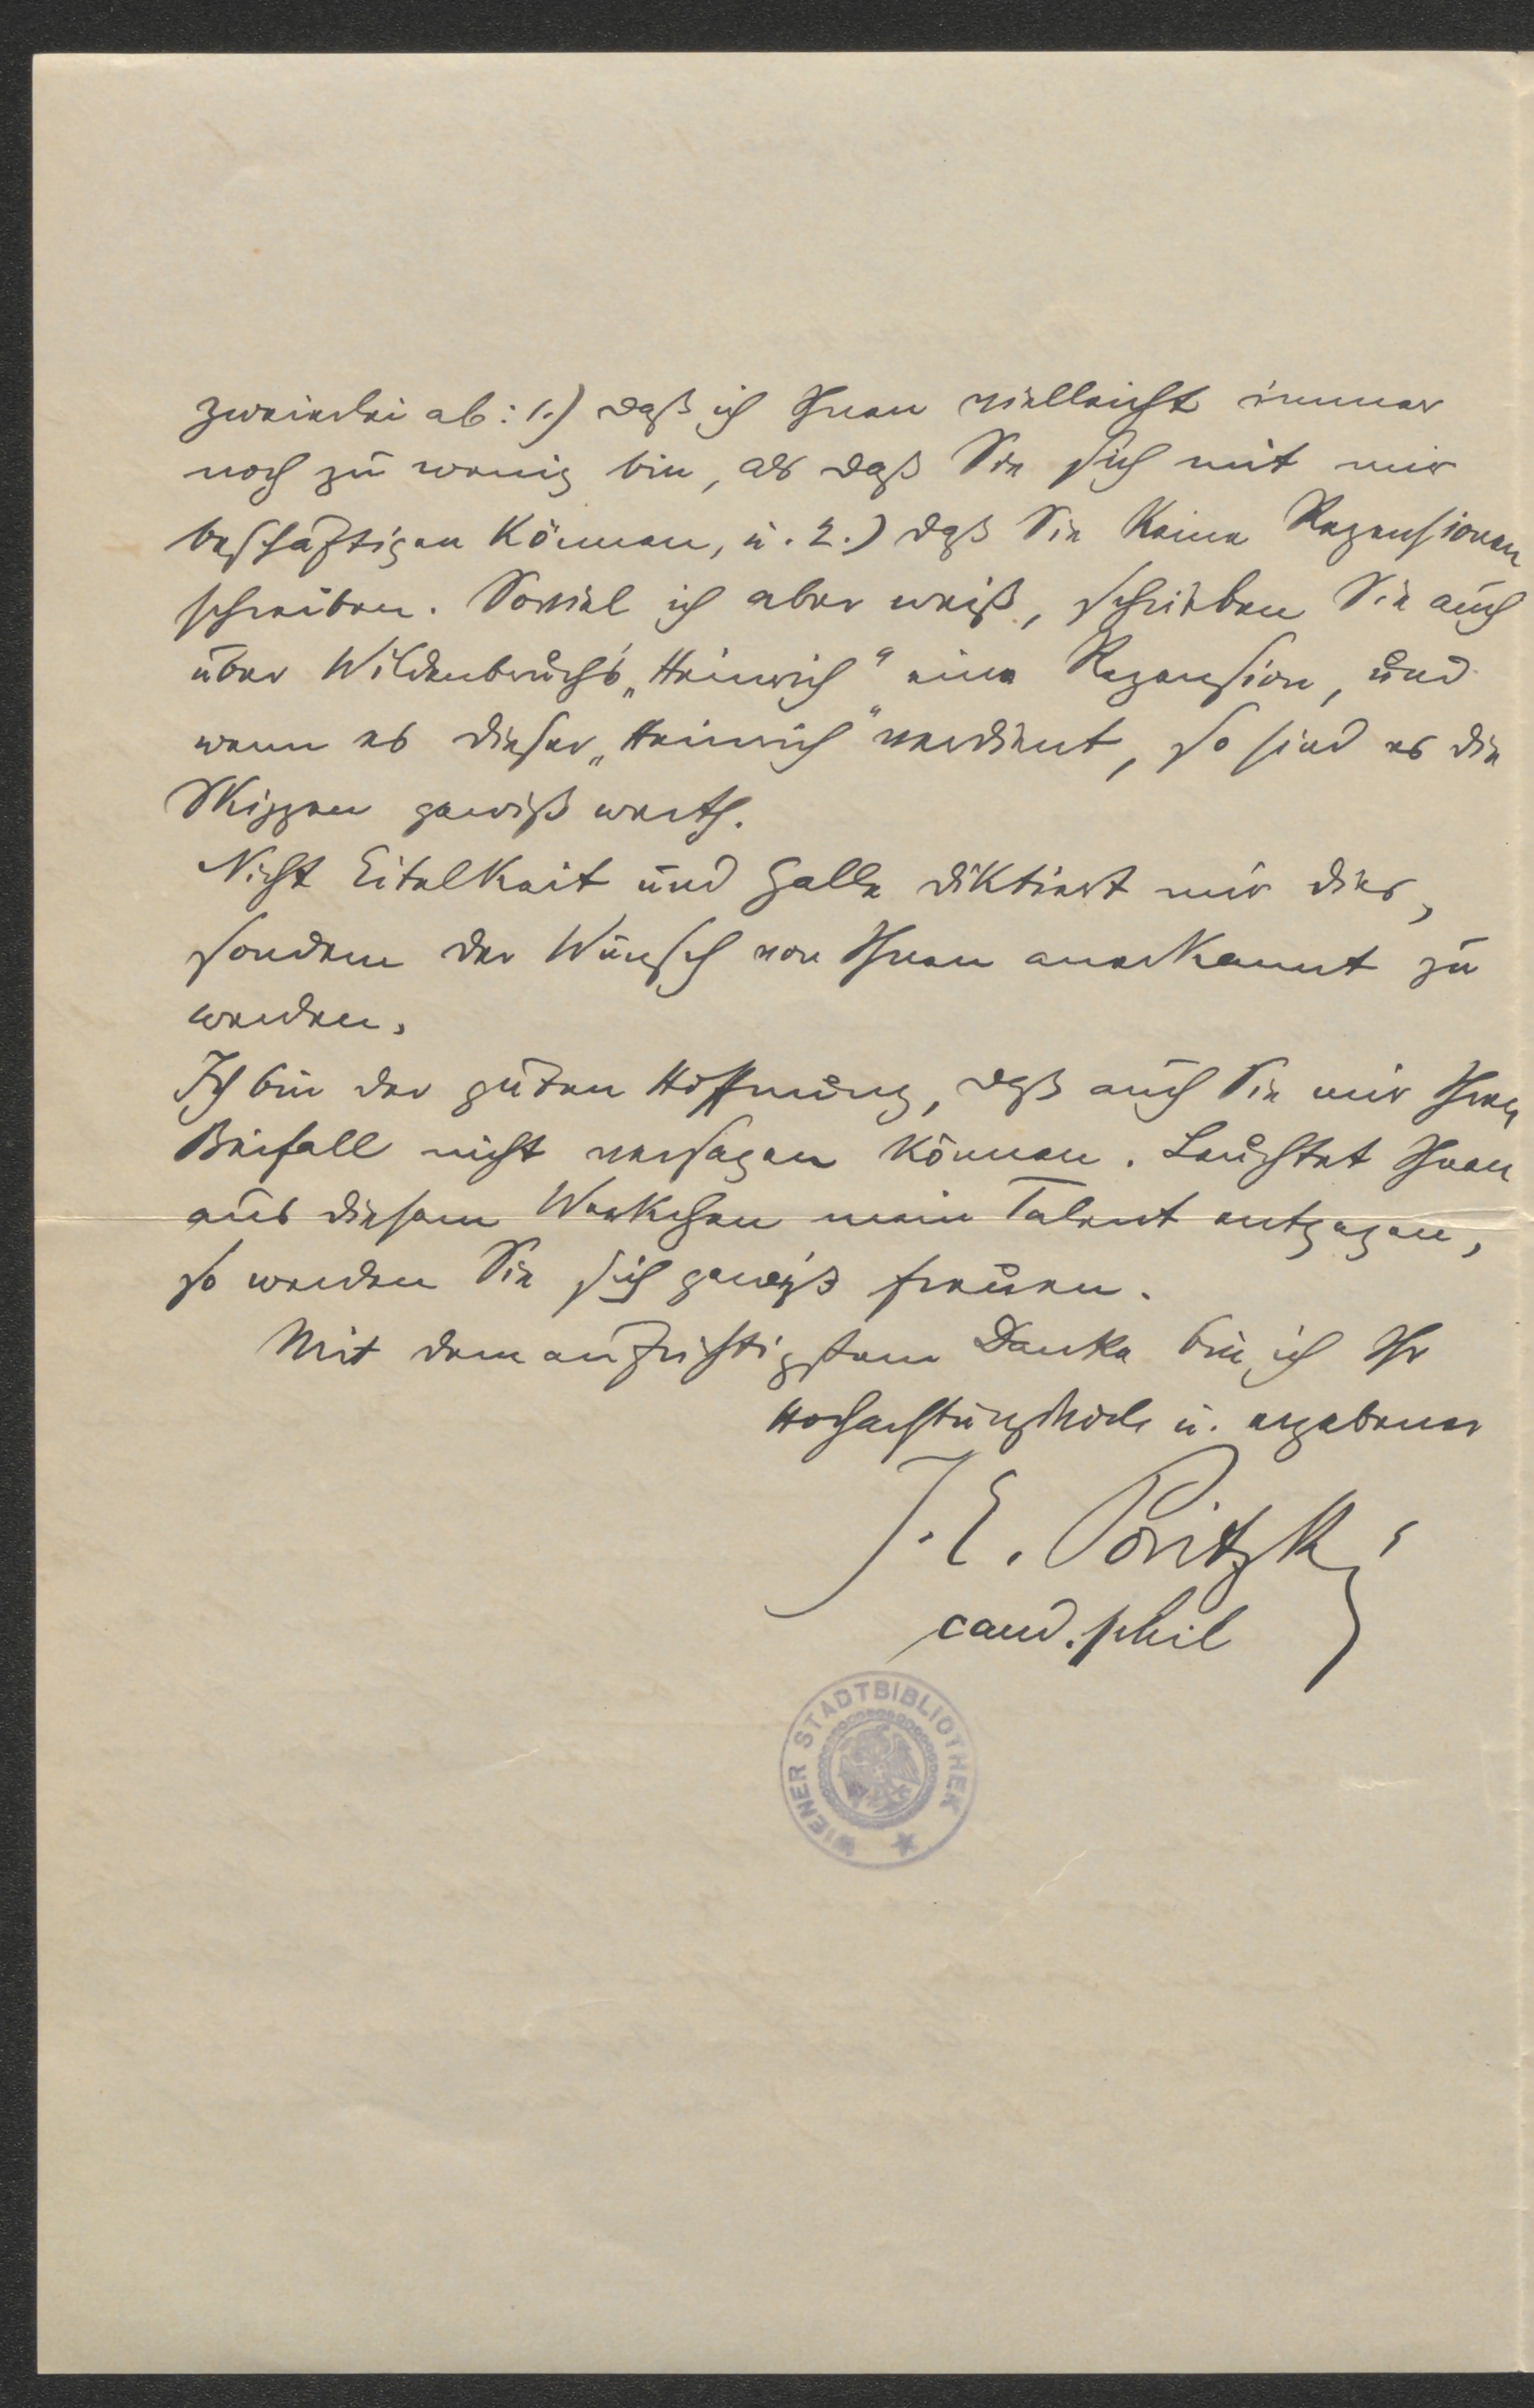 zweierlei ab: 1.) daß ich Ihnen vielleicht immer
noch zu wenig bin, als daß Sie sich mit mir
beschäftigen können, u. 2.) daß Sie keine Rezensionen
schreiben. Soviel ich aber weiß, schrieben Sie auch
über Wildenbruch's „Heinrich“ eine Rezension, und
wenn es dieser „Heinrich“ verdient, so sind es die
Skizzen gewiß werth.
Nicht Eitelkeit und Galle diktiert mir dies,
sondern der Wunsch von Ihnen anerkannt zu
werden.
Ich bin der guten Hoffnung, daß auch Sie mir Ihren
Beifall nicht versagen können. Leuchtet Ihnen
aus diesem Werkchen mein Talent entgegen,
so werden Sie sich gewiß freuen.
Mit dem aufrichtigstem Danke bin ich Ihr
Hochachtungsvoll u. ergebener
J. E. Poritzky
cand. phil
WIENER STADTBIBLIOTHEK